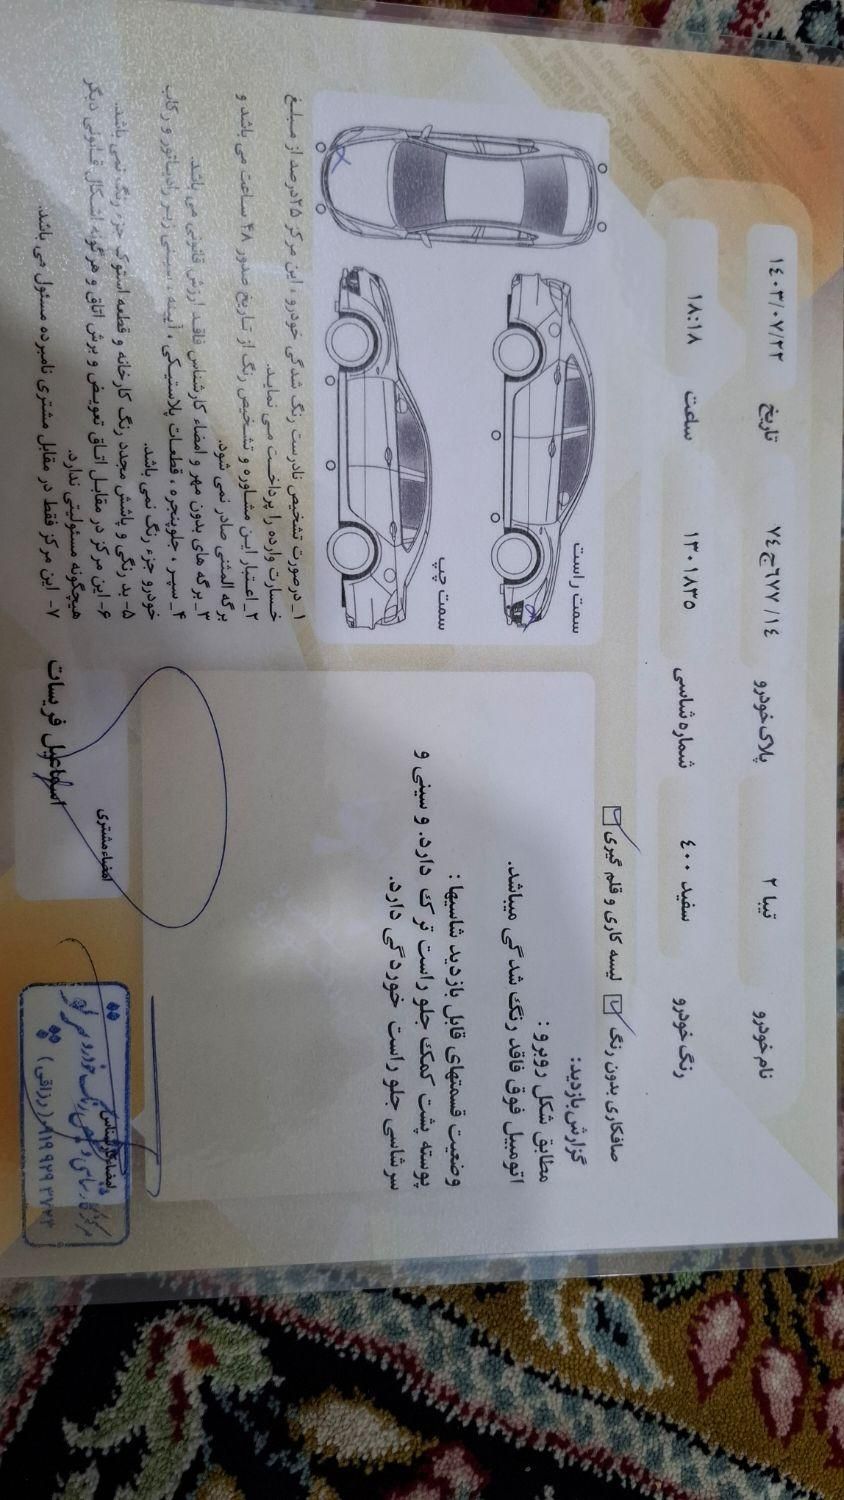 نام خودرو تیبا ۲ پلاک خودرو ۱۴/ ۶۷۷ج۷۴ تاریخ ۱۴۰۳/۰۷/۲۲
رنگ خودرو سفید ۴۰۰ شماره شاسی ۱۳۰۱۸۳۵ ساعت ۱۸:۱۸
صافکاری بدون رنگ لیسه کاری و قلم گیری
گزارش بازدید:
مطابق شکل روبرو :
اتومبیل فوق فاقد رنگ شدگی میباشد.
وضعیت قسمتهای قابل بازدید شاسیها :
پوسته پشت کمک جلو راست ترک دارد. و سینی و
سرشاسی جلو راست خوردگی دارد.
سمت راست
سمت چپ
۱_ درصورت تشخیص نادرست رنگ شدگی خودرو ، این مرکز ۲۵درصد از مبلغ
خسارت وارده را پرداخت می نماید.
۲_ اعتبار این مشاوره و تشخیص رنگ از تاریخ صدور ۴۸ ساعت می باشد و
برگه المثنی صادر نمی شود.
۳_ برگه های بدون مهر و امضاء کارشناس فاقد ارزش قانونی می باشد.
۴_ سپر ، جلوپنجره ، قطعات پلاستیکی ، آیینه ، سینی زیر رادیاتور و رکاب
خودرو جزء رنگ نمی باشد.
۵- بد رنگی و پاشش مجدد رنگ کارخانه و قطعه استوک جزء رنگ نمی باشد.
۶- این مرکز در مقابل اتاق تعویض و برش اتاق و هرگونه اشکال قانونی دیگر
هیچگونه مسئولیتی ندارد.
۷- این مرکز فقط در مقابل مشتری نامبرده مسئول می باشد.
امضاء مشتری
اسماعیل فریسات
امضاء کارشناس
(رزاقی)